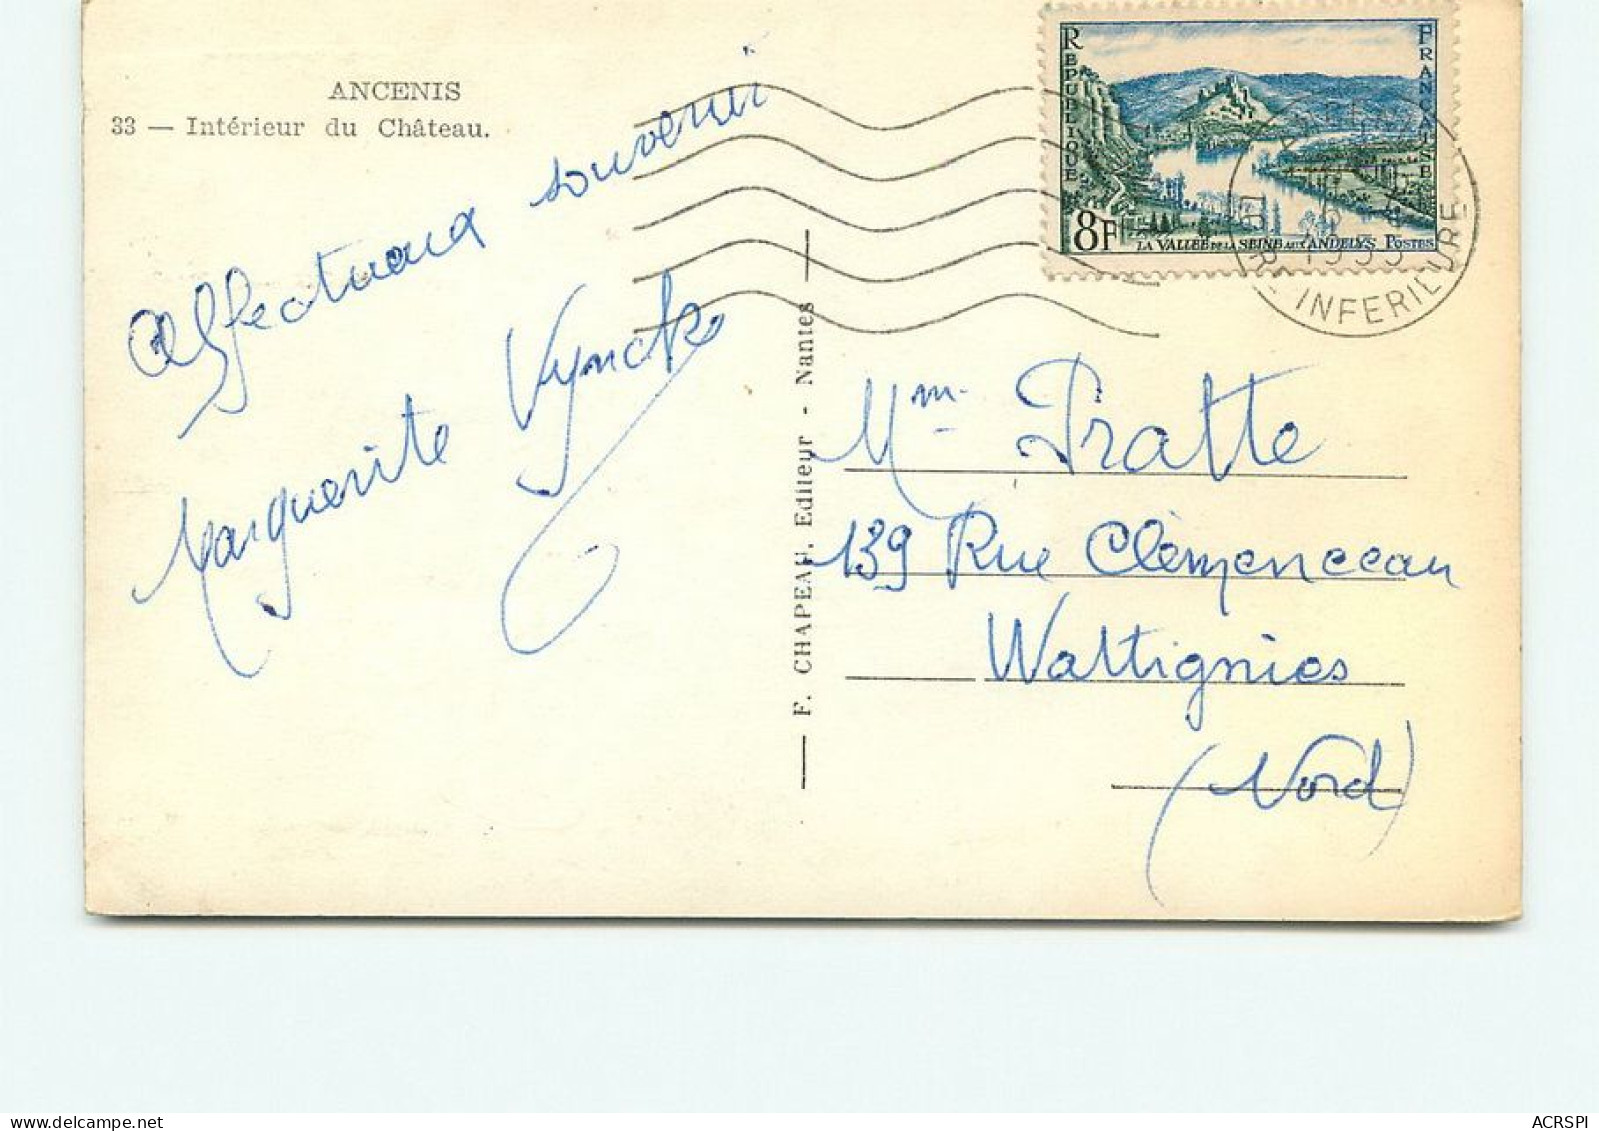 ANCENIS
33 — Intérieur du Château.
Affectueux souvenir
Marguerite Vynck
F. CHAPEAU, Editeur - Nantes
REPUBLIQUE FRANCAISE
8F
LA VALLEE DE LA SEINE AUX ANDELYS POSTES
1955
INFERIEURE
Mme Pratte
139 Rue Clémenceau
Wattignies
(Nord)
ACRSPI